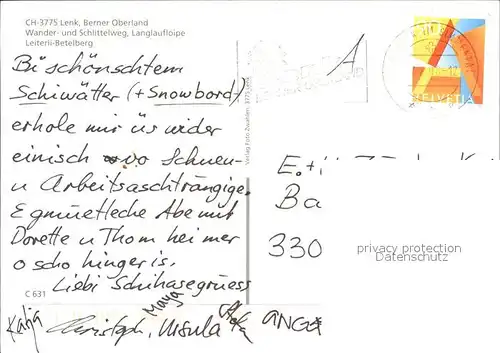 CH-3775 Lenk, Berner Oberland
Wander- und Schlittelweg, Langlaufloipe
Leiterli-Betelberg
A
HELVETIA
Bi schönschtem
Schiwätter (+ Snowbord)
erhole mir üs wider
einisch vo Schuen-
u Arbeitsaschträngige.
E gmüetleche Abe mit
Dorette u Thom hei mer
o scho hinger is.
Liebi Schihasegrüess
Katja Christoph, Maya Ursula
Verlag Foto Zwahlen, 3775 Lenk
E. +
Ba
330
privacy protection
Datenschutz
C 631